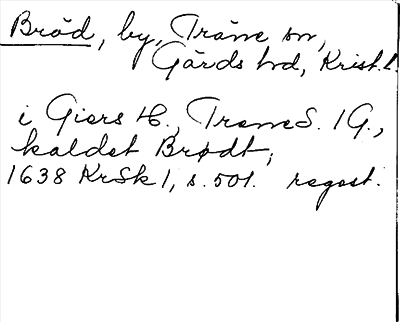 Bröd, by, Träne sn,
Gärds hd, Krist. l.
i Giers H., Trane S. IG.,
kaldet Brødt,
1638 KrSk 1, s. 501. regest.